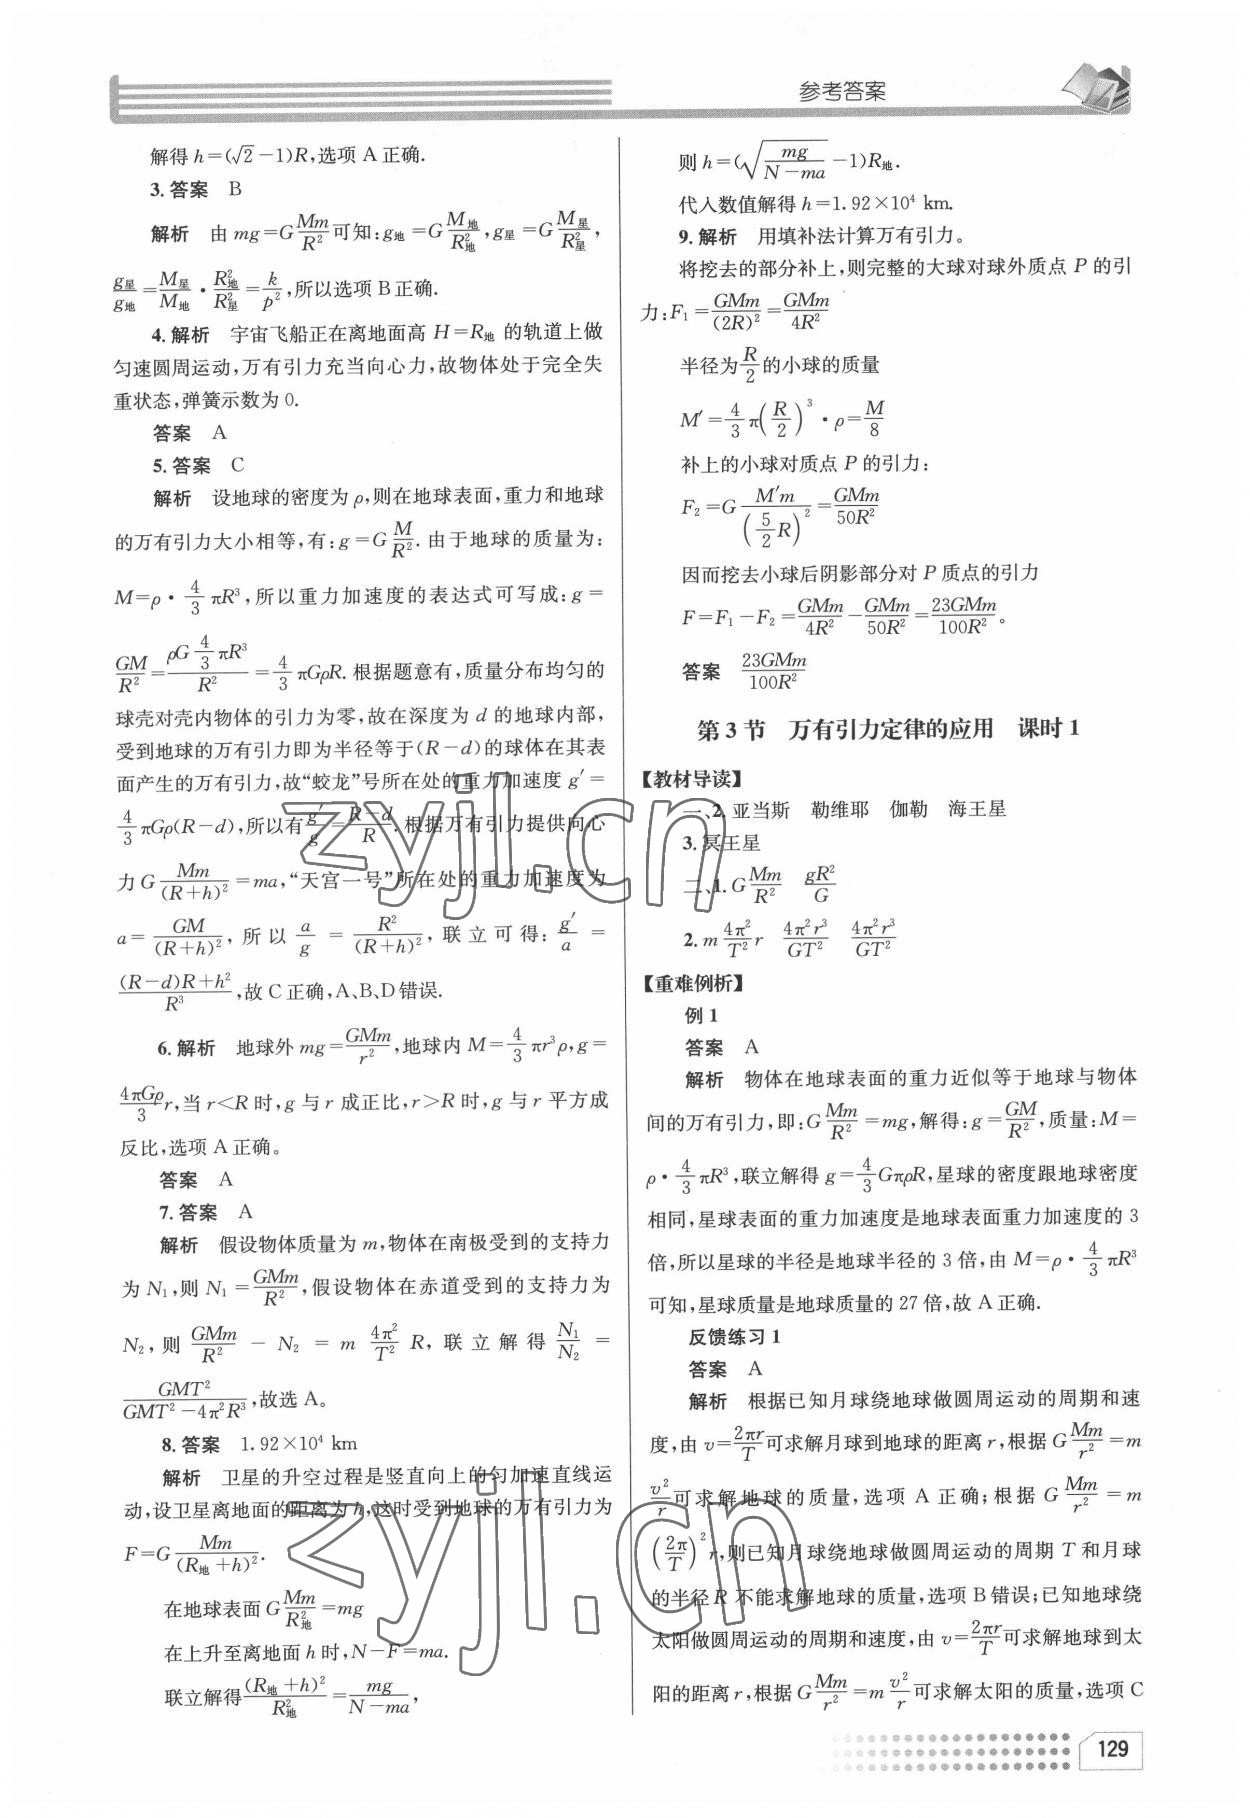 参考答案
解得 h=(√2-1)R,选项 A 正确.
3.答案 B
解析 由 mg=G\frac{Mm}{R²}可知:g地=G\frac{M地}{R²地},g星=G\frac{M星}{R²星},
\frac{g星}{g地}=\frac{M星}{M地}·\frac{R²地}{R²星}=\frac{k}{p²},所以选项 B 正确.
4.解析 宇宙飞船正在离地面高 H=R地 的轨道上做
匀速圆周运动,万有引力充当向心力,故物体处于完全失
重状态,弹簧示数为 0.
答案 A
5.答案 C
解析 设地球的密度为 ρ,则在地球表面,重力和地球
的万有引力大小相等,有:g=G\frac{M}{R²}.由于地球的质量为:
M=ρ·\frac{4}{3}πR³,所以重力加速度的表达式可写成:g=
\frac{GM}{R²}=\frac{ρG\frac{4}{3}πR³}{R²}=\frac{4}{3}πGρR.根据题意有,质量分布均匀的
球壳对壳内物体的引力为零,故在深度为 d 的地球内部,
受到地球的万有引力即为半径等于(R-d)的球体在其表
面产生的万有引力,故“蛟龙”号所在处的重力加速度 g′=
\frac{4}{3}πGρ(R-d),所以有\frac{g′}{g}=\frac{R-d}{R}.根据万有引力提供向心
力 G\frac{Mm}{(R+h)²}=ma,“天宫一号”所在处的重力加速度为
a=\frac{GM}{(R+h)²},所以\frac{a}{g}=\frac{R²}{(R+h)²},联立可得:\frac{g′}{a}=
\frac{(R-d)R+h²}{R³},故 C 正确,A、B、D 错误.
6.解析 地球外 mg=\frac{GMm}{r²},地球内 M=\frac{4}{3}πr³ρ,g=
\frac{4πGρ}{3}r,当 r<R 时,g 与 r 成正比,r>R 时,g 与 r 平方成
反比,选项 A 正确。
答案 A
7.答案 A
解析 假设物体质量为 m,物体在南极受到的支持力
为 N₁,则 N₁=\frac{GMm}{R²},假设物体在赤道受到的支持力为
N₂,则\frac{GMm}{R²}-N₂=m\frac{4π²}{T²}R,联立解得\frac{N₁}{N₂}=
\frac{GMT²}{GMT²-4π²R³},故选 A。
8.答案 1.92×10⁴ km
解析 卫星的升空过程是竖直向上的匀加速直线运
动,设卫星离地面的距离为 h,这时受到地球的万有引力为
F=G\frac{Mm}{(R地+h)²}.
在地球表面 G\frac{Mm}{R²地}=mg
在上升至离地面 h 时,N-F=ma.
联立解得\frac{(R地+h)²}{R²地}=\frac{mg}{N-ma},
则 h=(√\frac{mg}{N-ma}-1)R地.
代入数值解得 h=1.92×10⁴ km.
9.解析 用填补法计算万有引力。
将挖去的部分补上,则完整的大球对球外质点 P 的引
力:F₁=\frac{GMm}{(2R)²}=\frac{GMm}{4R²}
半径为\frac{R}{2}的小球的质量
M′=\frac{4}{3}π(\frac{R}{2})³·ρ=\frac{M}{8}
补上的小球对质点 P 的引力:
F₂=G\frac{M′m}{(\frac{5}{2}R)²}=\frac{GMm}{50R²}
因而挖去小球后阴影部分对 P 质点的引力
F=F₁-F₂=\frac{GMm}{4R²}-\frac{GMm}{50R²}=\frac{23GMm}{100R²}。
答案 \frac{23GMm}{100R²}
第 3 节 万有引力定律的应用 课时 1
【教材导读】
一、2.亚当斯 勒维耶 伽勒 海王星
3.冥王星
二、1.G\frac{Mm}{R²} \frac{gR²}{G}
2.m\frac{4π²}{T²}r \frac{4π²r³}{GT²} \frac{4π²r³}{GT²}
【重难例析】
例 1
答案 A
解析 物体在地球表面的重力近似等于地球与物体
间的万有引力,即:G\frac{Mm}{R²}=mg,解得:g=\frac{GM}{R²},质量:M=
ρ·\frac{4}{3}πR³,联立解得 g=\frac{4}{3}GπρR,星球的密度跟地球密度
相同,星球表面的重力加速度是地球表面重力加速度的 3
倍,所以星球的半径是地球半径的 3 倍,由 M=ρ·\frac{4}{3}πR³
可知,星球质量是地球质量的 27 倍,故 A 正确.
反馈练习 1
答案 A
解析 根据已知月球绕地球做圆周运动的周期和速
度,由 v=\frac{2πr}{T}可求解月球到地球的距离 r,根据 G\frac{Mm}{r²}=m
\frac{v²}{r}可求解地球的质量,选项 A 正确;根据 G\frac{Mm}{r²}=m
(\frac{2π}{T})²r,则已知月球绕地球做圆周运动的周期 T 和月球
的半径 R 不能求解地球的质量,选项 B 错误;已知地球绕
太阳做圆周运动的周期和速度,由 v=\frac{2πr}{T}可求解地球到太
阳的距离 r,根据 G\frac{Mm}{r²}=m\frac{v²}{r}可求解太阳的质量,选项 C
129
zyjl.cn
zyjl.cn